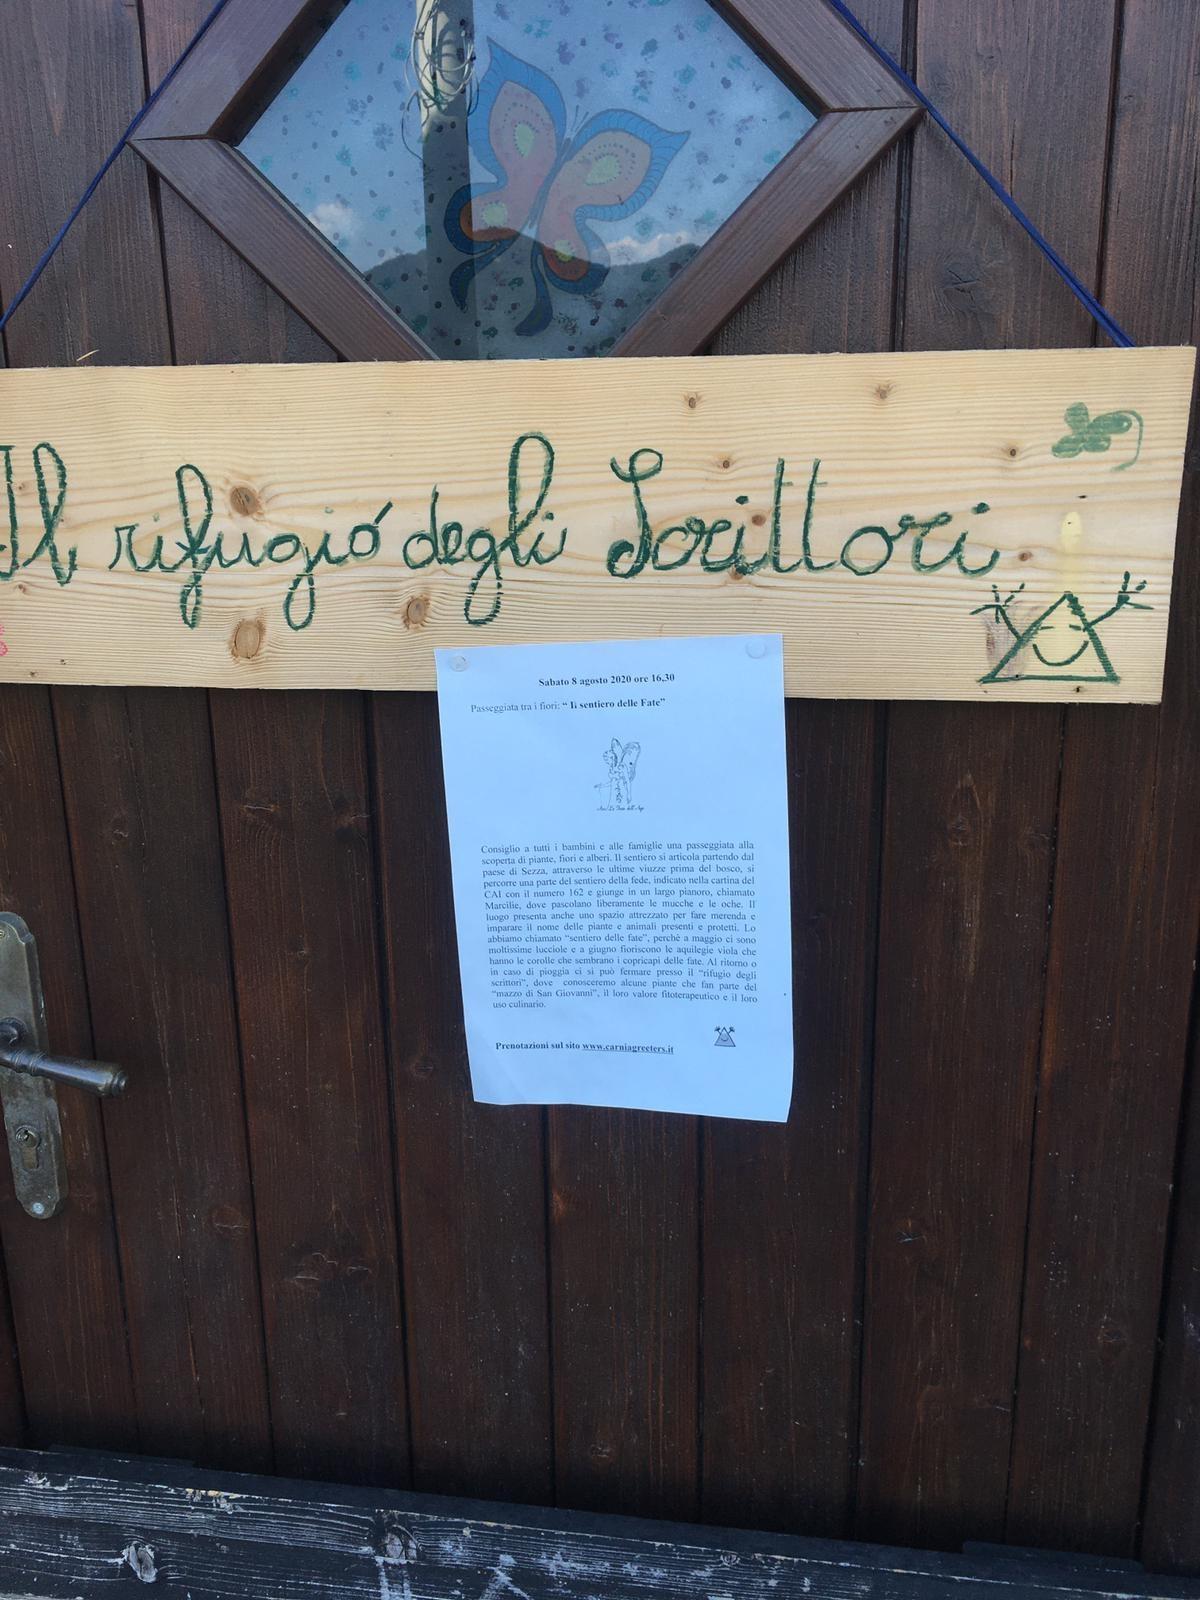 Il rifugio degli Scrittori
Sabato 8 agosto 2020 ore 16,30
Passeggiata tra i fiori: “ Il sentiero delle Fate”
Consiglio a tutti i bambini e alle famiglie una passeggiata alla
scoperta di piante, fiori e alberi. Il sentiero si articola partendo dal
paese di Sezza, attraverso le ultime viuzze prima del bosco, si
percorre una parte del sentiero della fede, indicato nella cartina del
CAI con il numero 162 e giunge in un largo pianoro, chiamato
Marcilie, dove pascolano liberamente le mucche e le oche. Il
luogo presenta anche uno spazio attrezzato per fare merenda e
imparare il nome delle piante e animali presenti e protetti. Lo
abbiamo chiamato “sentiero delle fate”, perchè a maggio ci sono
moltissime lucciole e a giugno fioriscono le aquilegie viola che
hanno le corolle che sembrano i copricapi delle fate. Al ritorno o
in caso di pioggia ci si può fermare presso il “rifugio degli
scrittori”, dove conosceremo alcune piante che fan parte del
“mazzo di San Giovanni”, il loro valore fitoterapeutico e il loro
uso culinario.
Prenotazioni sul sito www.carniagreeters.it